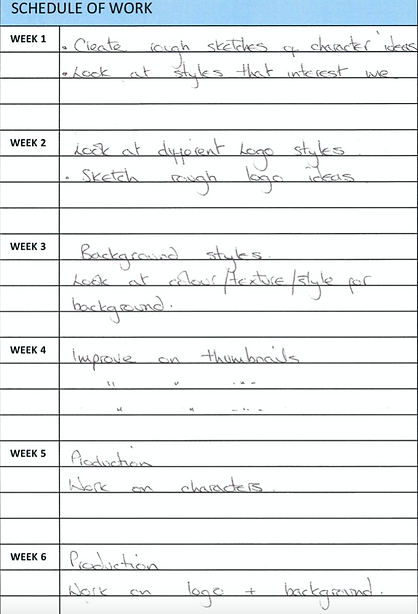 SCHEDULE OF WORK
WEEK 1
• Create rough sketches of character ideas
• Look at styles that interest me
WEEK 2
Look at different logo styles.
• Sketch rough logo ideas
WEEK 3
Background styles.
Look at colour/texture/style for
background.
WEEK 4
Improve on thumbnails
" " -"-
" " -"-
WEEK 5
Production
Work on characters.
WEEK 6
Production
Work on logo + background.